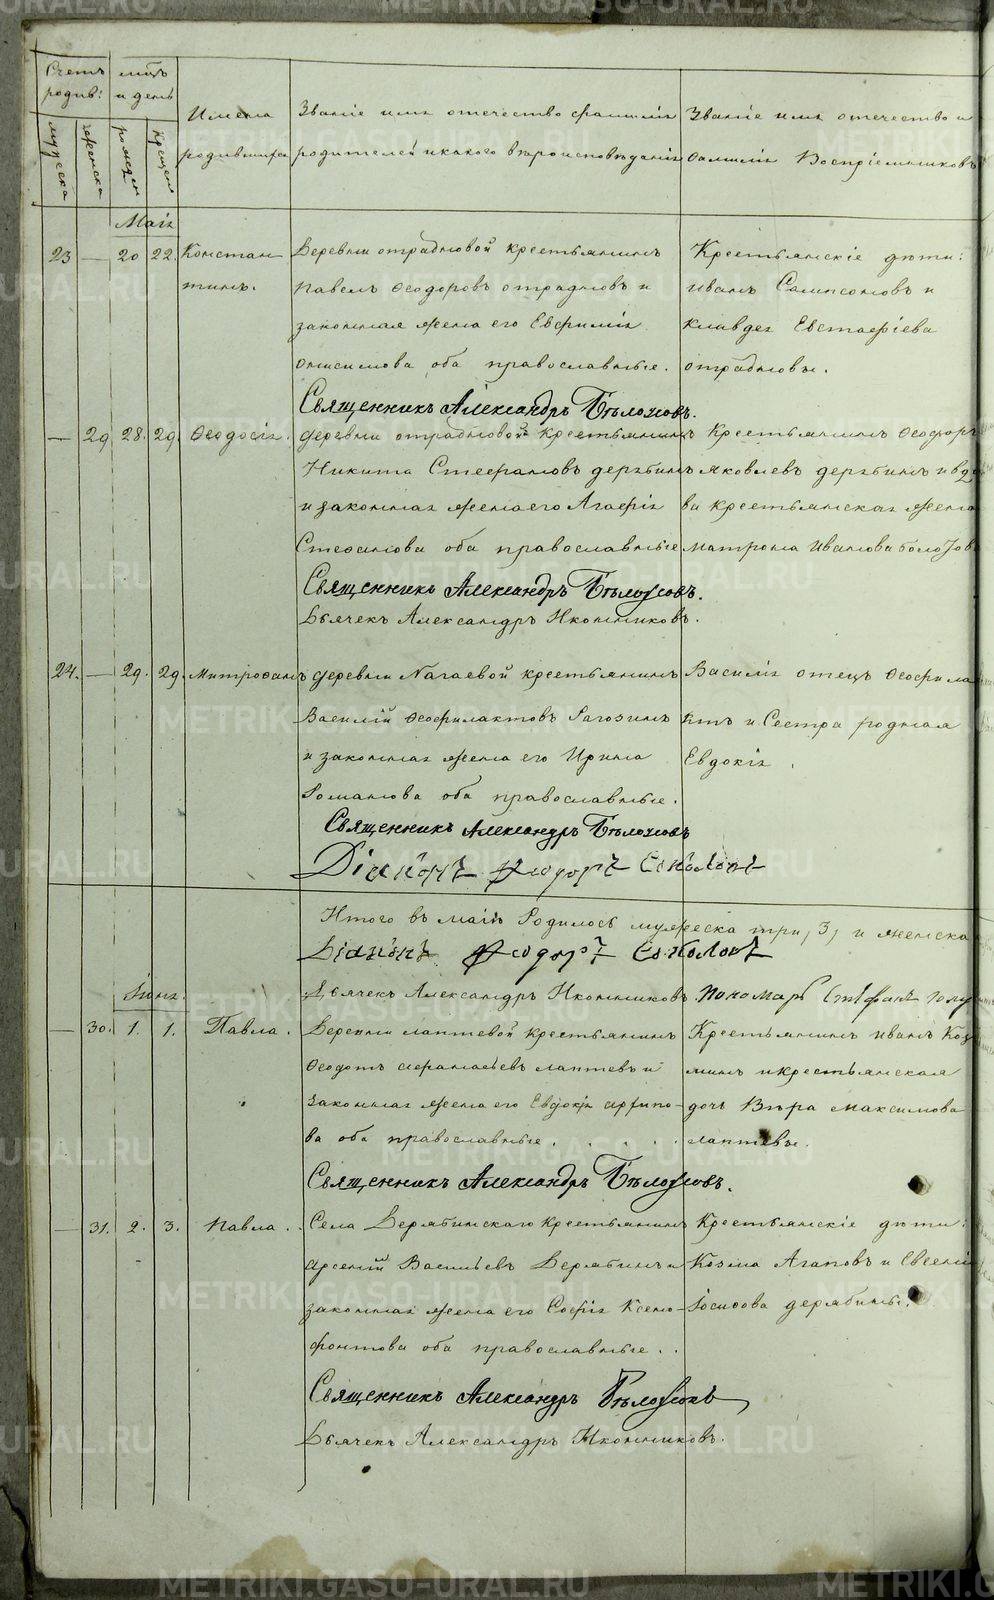 METRIKI.GASO-URAL.RU
Счетъ родив:
мцъ и день
Имена родившихся
Званіе имя отечество фамилія родителей и какого вѣроисповѣданія
Званіе имя отечество и фамилія Воспріемниковъ
мужеска
женска
рожден
крещен
Маія
23 — 20 22. Констан Деревни отрадновой крестьянинъ Крестьянскіе дѣти:
тинъ. Павелъ Ѳеодоровъ отрадновъ и Иванъ Сампсоновъ и
законная жена его Евфимія Клавдея Евстафіева
онисимова оба православные. отрадновы.
Священникъ Александръ Бѣлоусовъ.
— 29 28. 29. Ѳеодосія. деревни отрадновой крестьянинъ Крестьянинъ Ѳеодоръ
Никита Стефановъ дерябинъ Яковлевъ дерябинъ и вдо
и законная жена его Агафія ва крестьянская жена
Стефанова оба православные Матрона Иванова
Священникъ Александръ Бѣлоусовъ.
Дьячекъ Александръ Иконниковъ.
24. — 29. 29. Митрофанъ деревни Нагаевой крестьянинъ Василія отецъ Ѳеофила
Василій Ѳеофилактовъ Рагозинъ ктъ и Сестра родная
и законная жена его Ирина Евдокія.
Романова оба православные.
Священникъ Александръ Бѣлоусовъ
Діаконъ Ѳеодоръ Соколовъ
Итого въ маіѣ Родилось мужеска три, 3, и женска
Діаконъ Ѳеодоръ Соколовъ
Дьячекъ Александръ Иконниковъ. Пономарь Стефанъ
Іюня.
— 30. 1. 1. Павла. Деревни лаптевой Крестьянинъ Крестьянинъ Иванъ Коз
Ѳеодотъ лаптевъ и минъ и крестьянская
законная жена его Евдокія архипо- дочь Вѣра Максимова
ва оба православные. . . . . лаптевы.
Священникъ Александръ Бѣлоусовъ.
— 31. 2. 3. Павла. Села Дерябинскаго крестьянинъ Крестьянскіе дѣти:
Арсеній Васильевъ Дерябинъ и Козма Агаповъ и Евгенія
законная жена его Софія Ксено- Іосифова дерябины.
фонтова оба православные. .
Священникъ Александръ Бѣлоусовъ
Дьячекъ Александръ Иконниковъ.